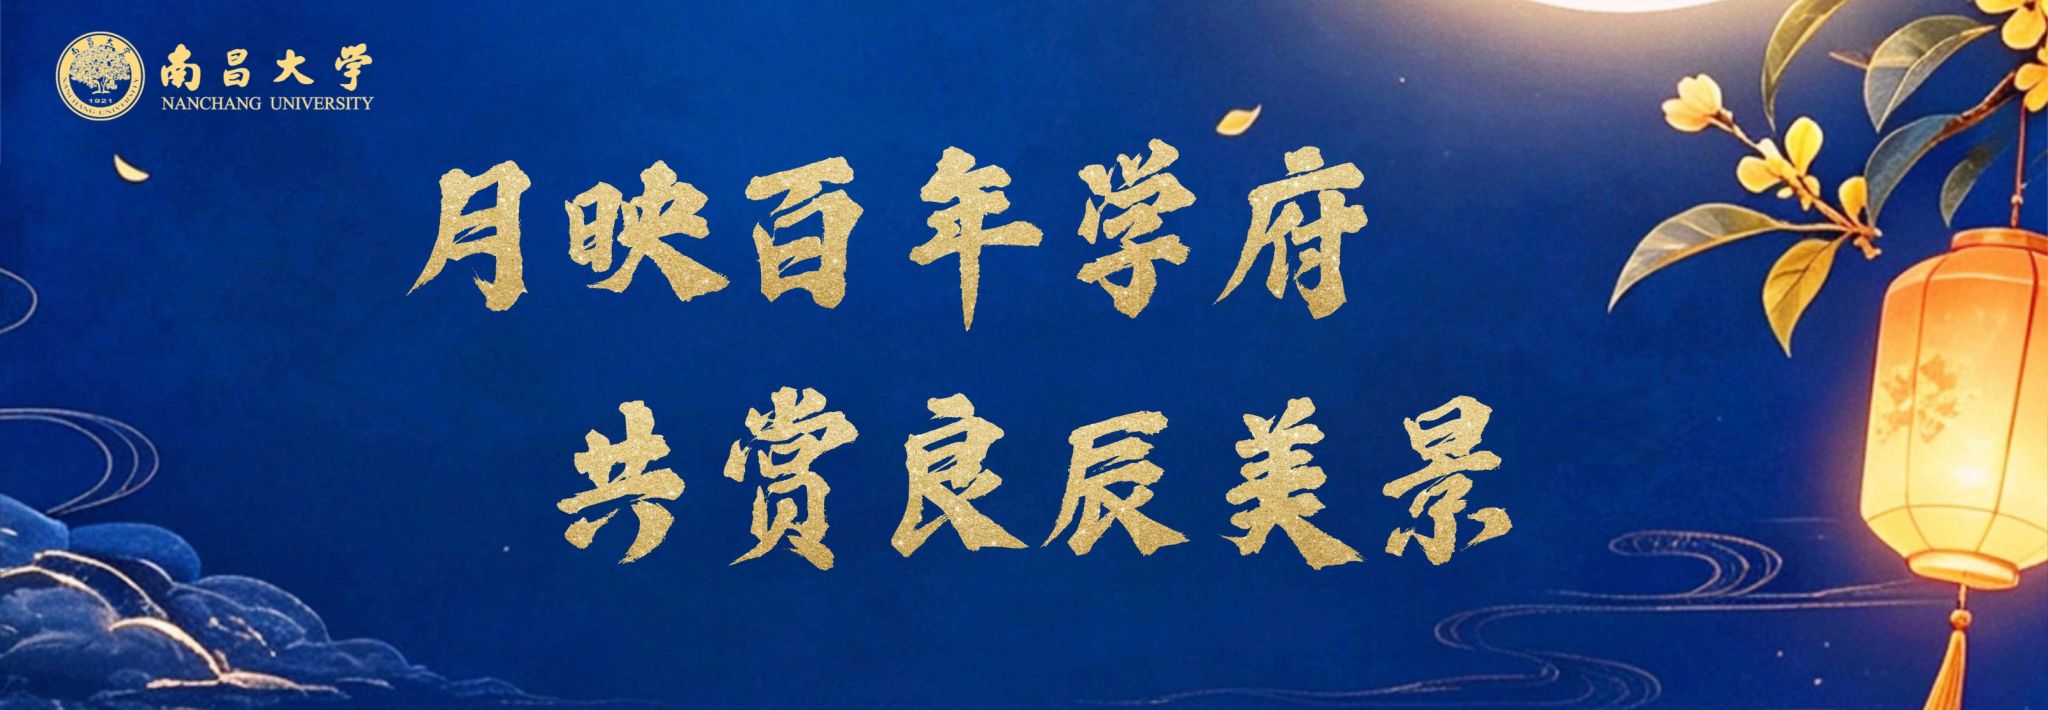 南昌大学
NANCHANG UNIVERSITY
南昌大学
1921
NANCHANG UNIVERSITY
月映百年学府
共赏良辰美景